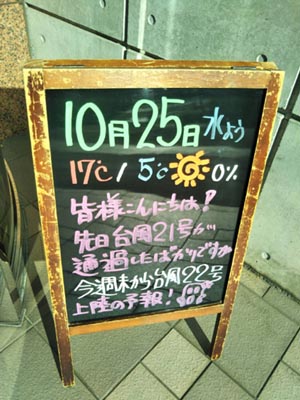 10月25日 水よう
17℃/5℃ 0%
皆様こんにちは!
先日台風21号が
通過したばかりですが
今週末から台風22号
上陸の予報!